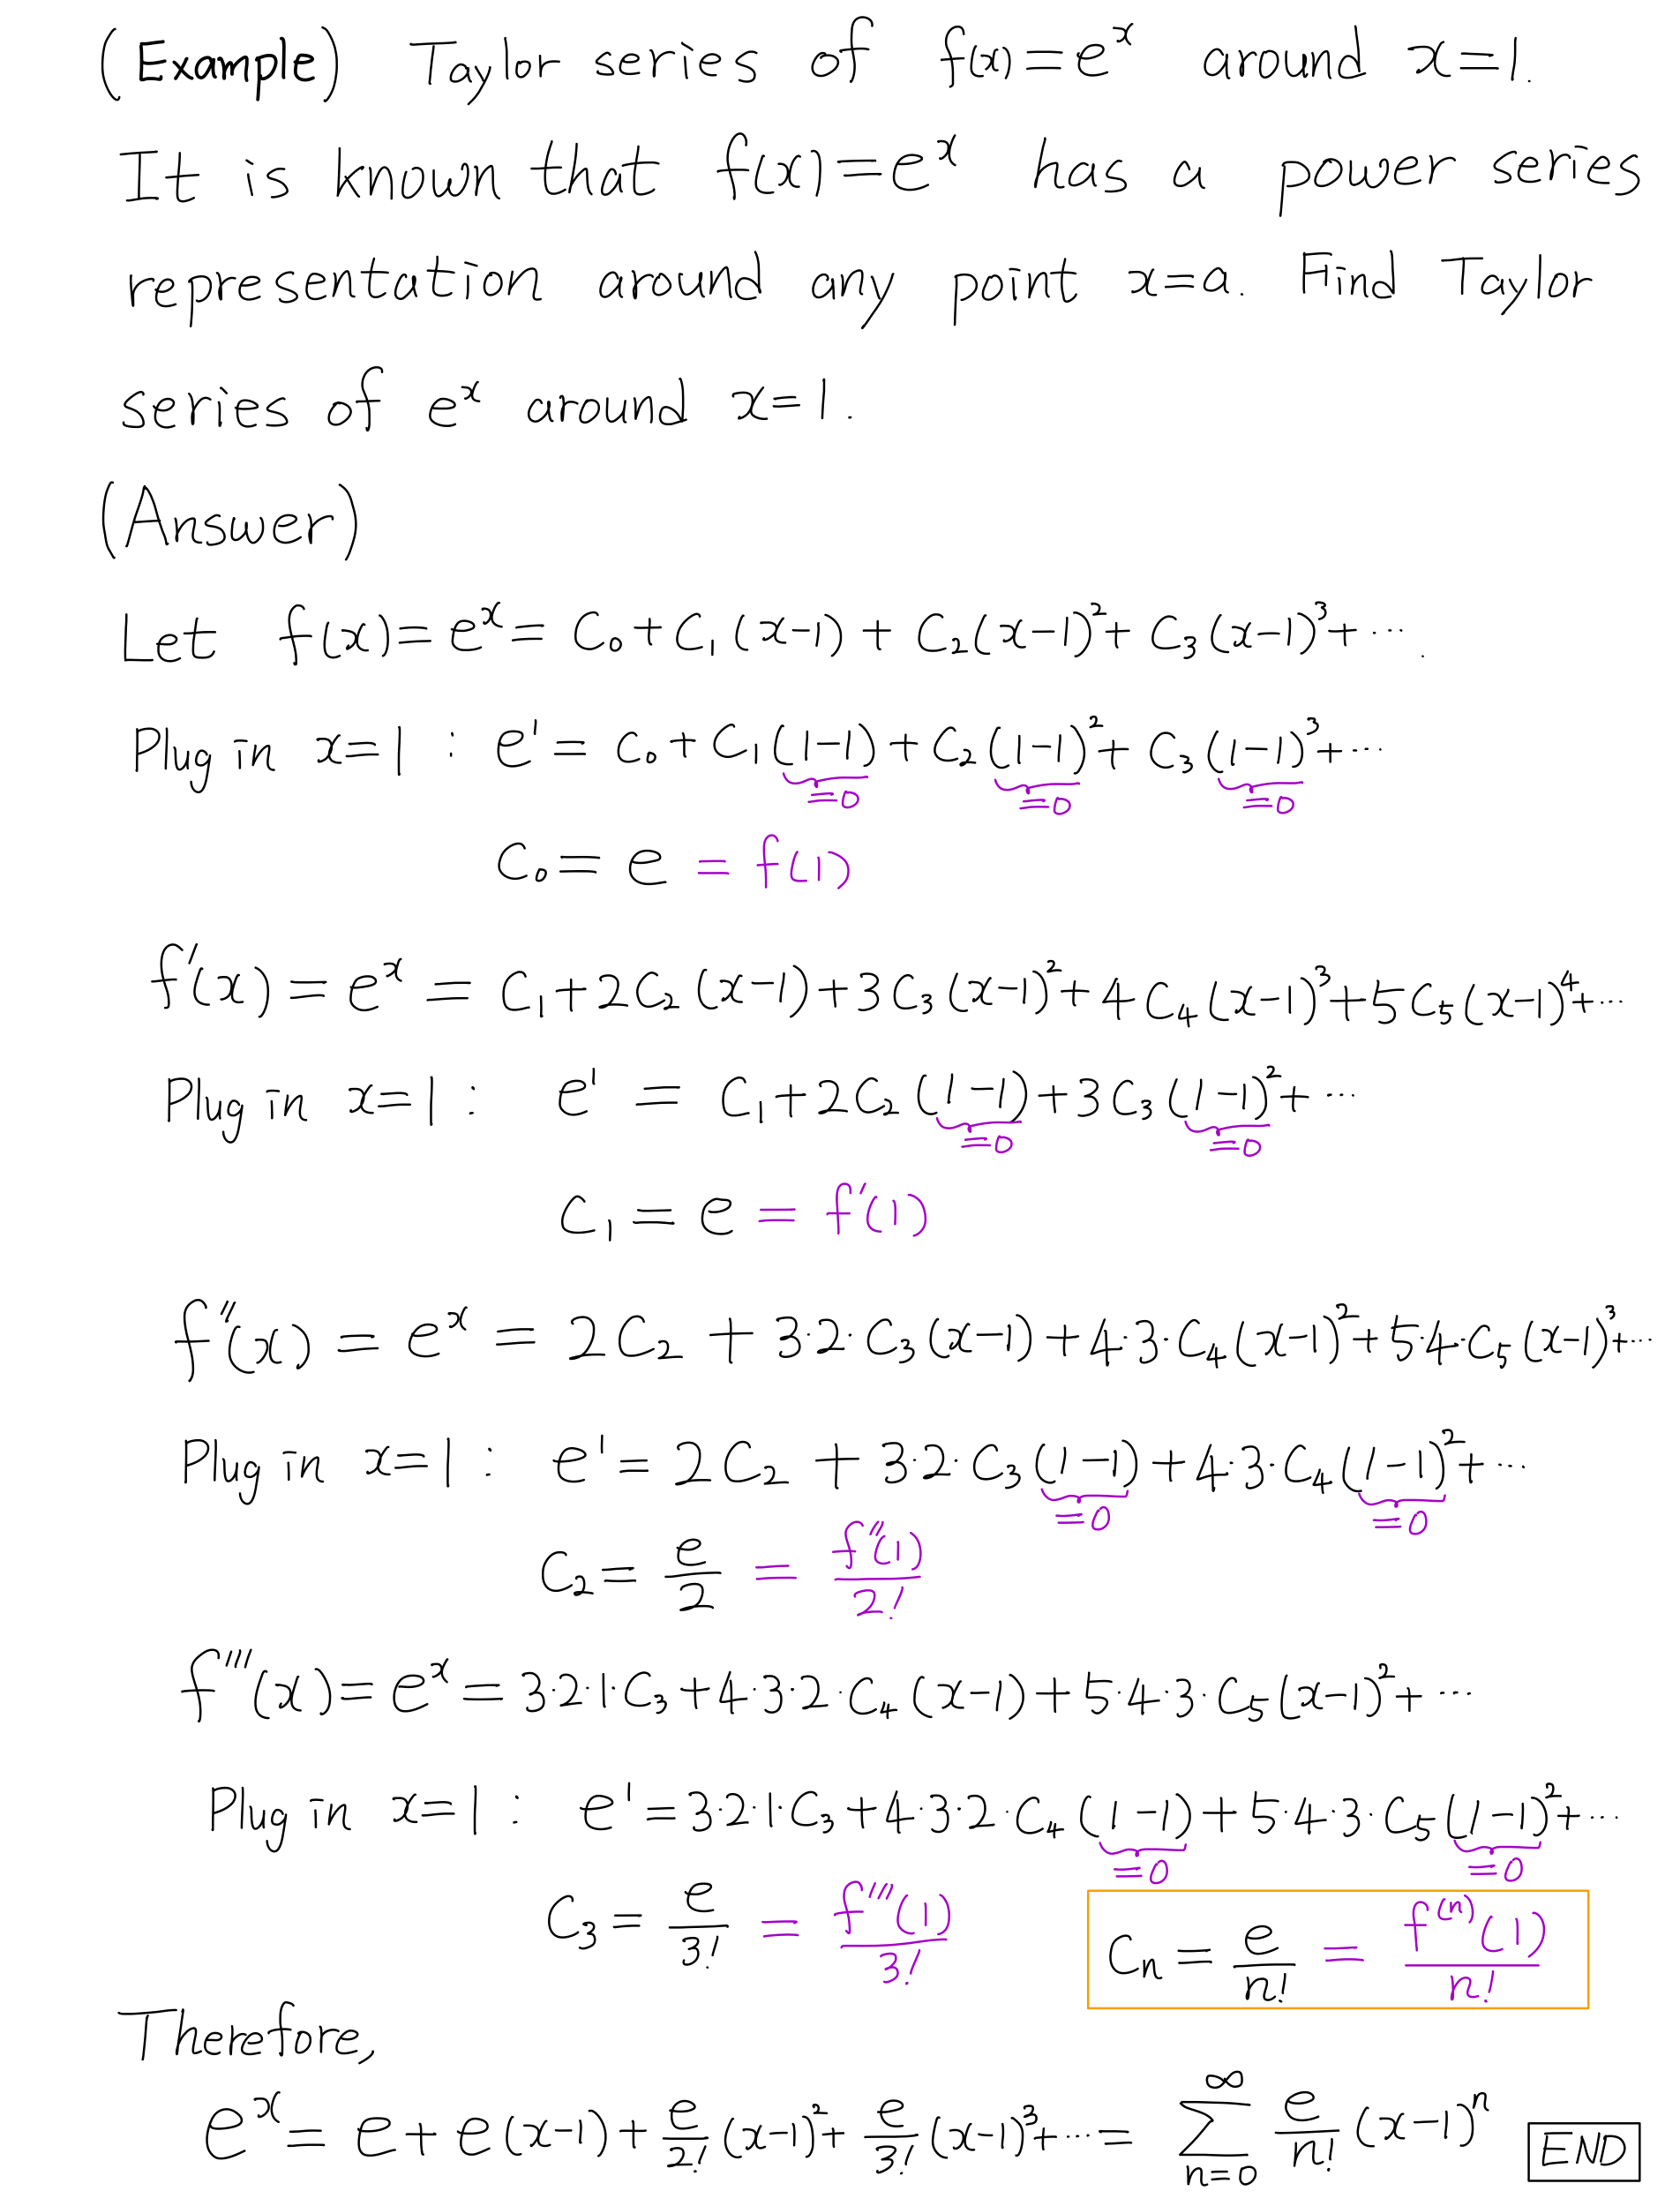 (Example) Taylor series of f(x)=eˣ around x=1.
It is known that f(x)=eˣ has a power series
representation around any point x=a. Find Taylor
series of eˣ around x=1.
(Answer)
Let f(x)=eˣ= C₀+C₁(x-1)+C₂(x-1)²+C₃(x-1)³+⋯.
Plug in x=1 : e¹= C₀+C₁(1-1)+C₂(1-1)²+C₃(1-1)³+⋯
=0 =0 =0
C₀= e = f(1)
f'(x) = eˣ = C₁+2C₂(x-1)+3C₃(x-1)²+4C₄(x-1)³+5C₅(x-1)⁴+⋯
Plug in x=1 : e¹ = C₁+2C₂(1-1)+3C₃(1-1)²+⋯
=0 =0
C₁ = e = f'(1)
f''(x) = eˣ = 2C₂ + 3·2·C₃(x-1)+4·3·C₄(x-1)²+5·4·C₅(x-1)³+⋯
Plug in x=1 : e¹= 2C₂ + 3·2·C₃(1-1)+4·3·C₄(1-1)²+⋯
=0 =0
C₂= e/2 = f''(1)/2!
f'''(x)= eˣ = 3·2·1·C₃+4·3·2·C₄(x-1)+5·4·3·C₅(x-1)²+⋯
Plug in x=1 : e¹=3·2·1·C₃+4·3·2·C₄(1-1)+5·4·3·C₅(1-1)²+⋯
=0 =0
C₃ = e/3! = f'''(1)/3!
Cₙ = e/n! = f⁽ⁿ⁾(1)/n!
Therefore,
eˣ= e+e(x-1)+e/2!(x-1)²+e/3!(x-1)³+⋯= ∑_{n=0}^{∞} e/n!(x-1)ⁿ END